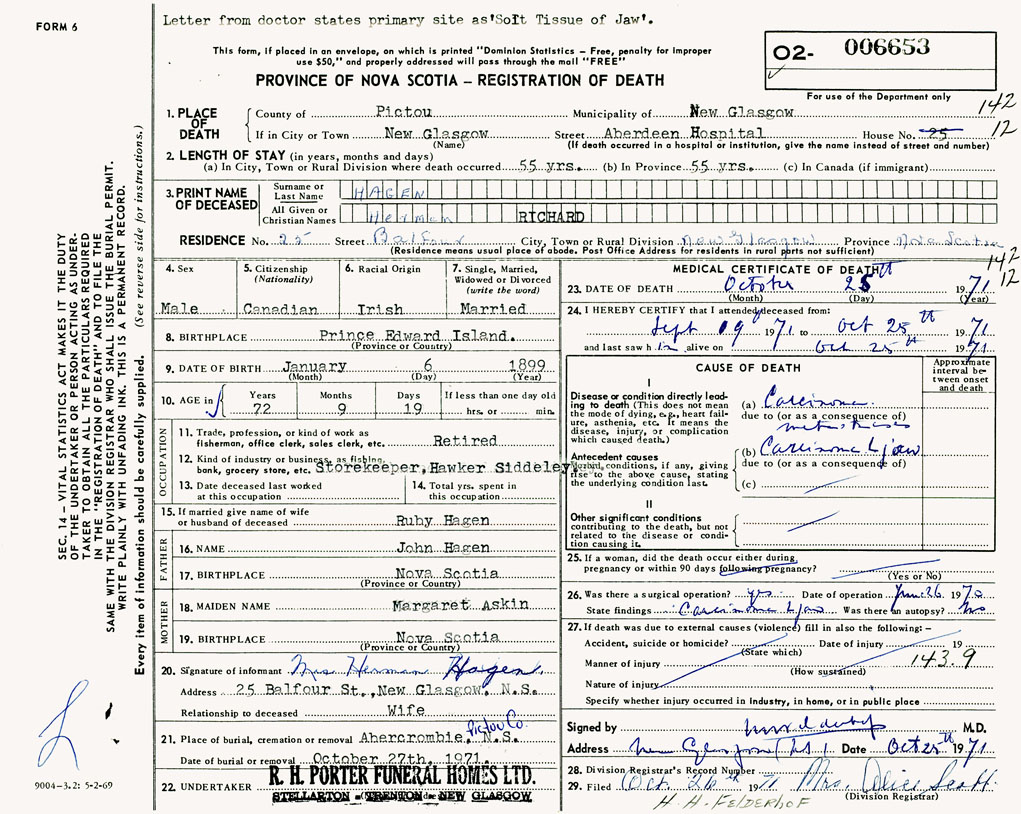 FORM 6
Letter from doctor states primary site as'Soft Tissue of Jaw'.
This form, if placed in an envelope, on which is printed "Dominion Statistics – Free, penalty for improper
use $50," and properly addressed will pass through the mail "FREE"
PROVINCE OF NOVA SCOTIA – REGISTRATION OF DEATH
O2- 006653
For use of the Department only
142
12
1. PLACE OF DEATH
County of Pictou Municipality of New Glasgow
If in City or Town New Glasgow Street Aberdeen Hospital House No. 25
(Name) (If death occurred in a hospital or institution, give the name instead of street and number)
2. LENGTH OF STAY (in years, months and days)
(a) In City, Town or Rural Division where death occurred 55 yrs. (b) In Province 55 yrs. (c) In Canada (if immigrant)
3. PRINT NAME OF DECEASED
Surname or Last Name HAGEN
All Given or Christian Names Herman RICHARD
RESIDENCE No. 25 Street Balfour City, Town or Rural Division New Glasgow Province Nova Scotia
(Residence means usual place of abode. Post Office Address for residents in rural parts not sufficient)
142
12
4. Sex
Male
5. Citizenship
(Nationality)
Canadian
6. Racial Origin
Irish
7. Single, Married,
Widowed or Divorced
(write the word)
Married
8. BIRTHPLACE Prince Edward Island.
(Province or Country)
9. DATE OF BIRTH January 6 1899
(Month) (Day) (Year)
10. AGE in Years Months Days If less than one day old
72 9 19 hrs. or min.
OCCUPATION
11. Trade, profession, or kind of work as
fisherman, office clerk, sales clerk, etc. Retired
12. Kind of industry or business, as fishing,
bank, grocery store, etc. Storekeeper, Hawker Siddeley.
13. Date deceased last worked
at this occupation
14. Total yrs. spent in
this occupation
15. If married give name of wife
or husband of deceased Ruby Hagen
FATHER
16. NAME John Hagen
17. BIRTHPLACE Nova Scotia
(Province or Country)
MOTHER
18. MAIDEN NAME Margaret Askin
19. BIRTHPLACE Nova Scotia
(Province or Country)
20. Signature of informant Mrs Herman Hagen.
Address 25 Balfour St.,New Glasgow, N.S.
Relationship to deceased Wife
Pictou Co.
21. Place of burial, cremation or removal Abercrombie, N.S.
Date of burial or removal October 27th, 1971.
22. UNDERTAKER R. H. PORTER FUNERAL HOMES LTD.
STELLARTON – TRENTON – NEW GLASGOW
MEDICAL CERTIFICATE OF DEATH
23. DATE OF DEATH October 25th 1971
(Month) (Day) (Year)
24. I HEREBY CERTIFY that I attended deceased from:
Sept 19 1971 to Oct 25th 1971
and last saw him alive on Oct 25th 1971
CAUSE OF DEATH
Approximate
interval be-
tween onset
and death
I
Disease or condition directly lead-
ing to death (This does not mean
the mode of dying, e.g., heart fail-
ure, asthenia, etc. It means the
disease, injury, or complication
which caused death.)
(a) Carcinoma
due to (or as a consequence of)
Antecedent causes
Morbid conditions, if any, giving
rise to the above cause, stating
the underlying condition last.
(b) Carcinoma of jaw
due to (or as a consequence of)
(c)
II
Other significant conditions
contributing to the death, but not
related to the disease or condi-
tion causing it.
25. If a woman, did the death occur either during
pregnancy or within 90 days following pregnancy?
(Yes or No)
26. Was there a surgical operation? yes Date of operation 26 1970
State findings Carcinoma of jaw Was there an autopsy? No
27. If death was due to external causes (violence) fill in also the following: –
Accident, suicide or homicide? Date of injury 19
(State which)
Manner of injury 143.9
(How sustained)
Nature of injury
Specify whether injury occurred in industry, in home, or in public place
Signed by M.D.
Address New Glasgow Date Oct 25 1971
28. Division Registrar's Record Number
29. Filed Oct. 26 1971 Mrs. Alice Scott
(Division Registrar)
H. H. FELDERHOF
SEC. 14 – VITAL STATISTICS ACT MAKES IT THE DUTY
OF THE UNDERTAKER OR PERSON ACTING AS UNDER-
TAKER TO OBTAIN ALL THE PARTICULARS REQUIRED
IN THE "REGISTRATION OF DEATH" AND TO FILE THE
SAME WITH THE DIVISION REGISTRAR WHO SHALL ISSUE THE BURIAL PERMIT.
WRITE PLAINLY WITH UNFADING INK. THIS IS A PERMANENT RECORD.
Every item of information should be carefully supplied. (See reverse side for instructions.)
9004–3.2: 5-2-69